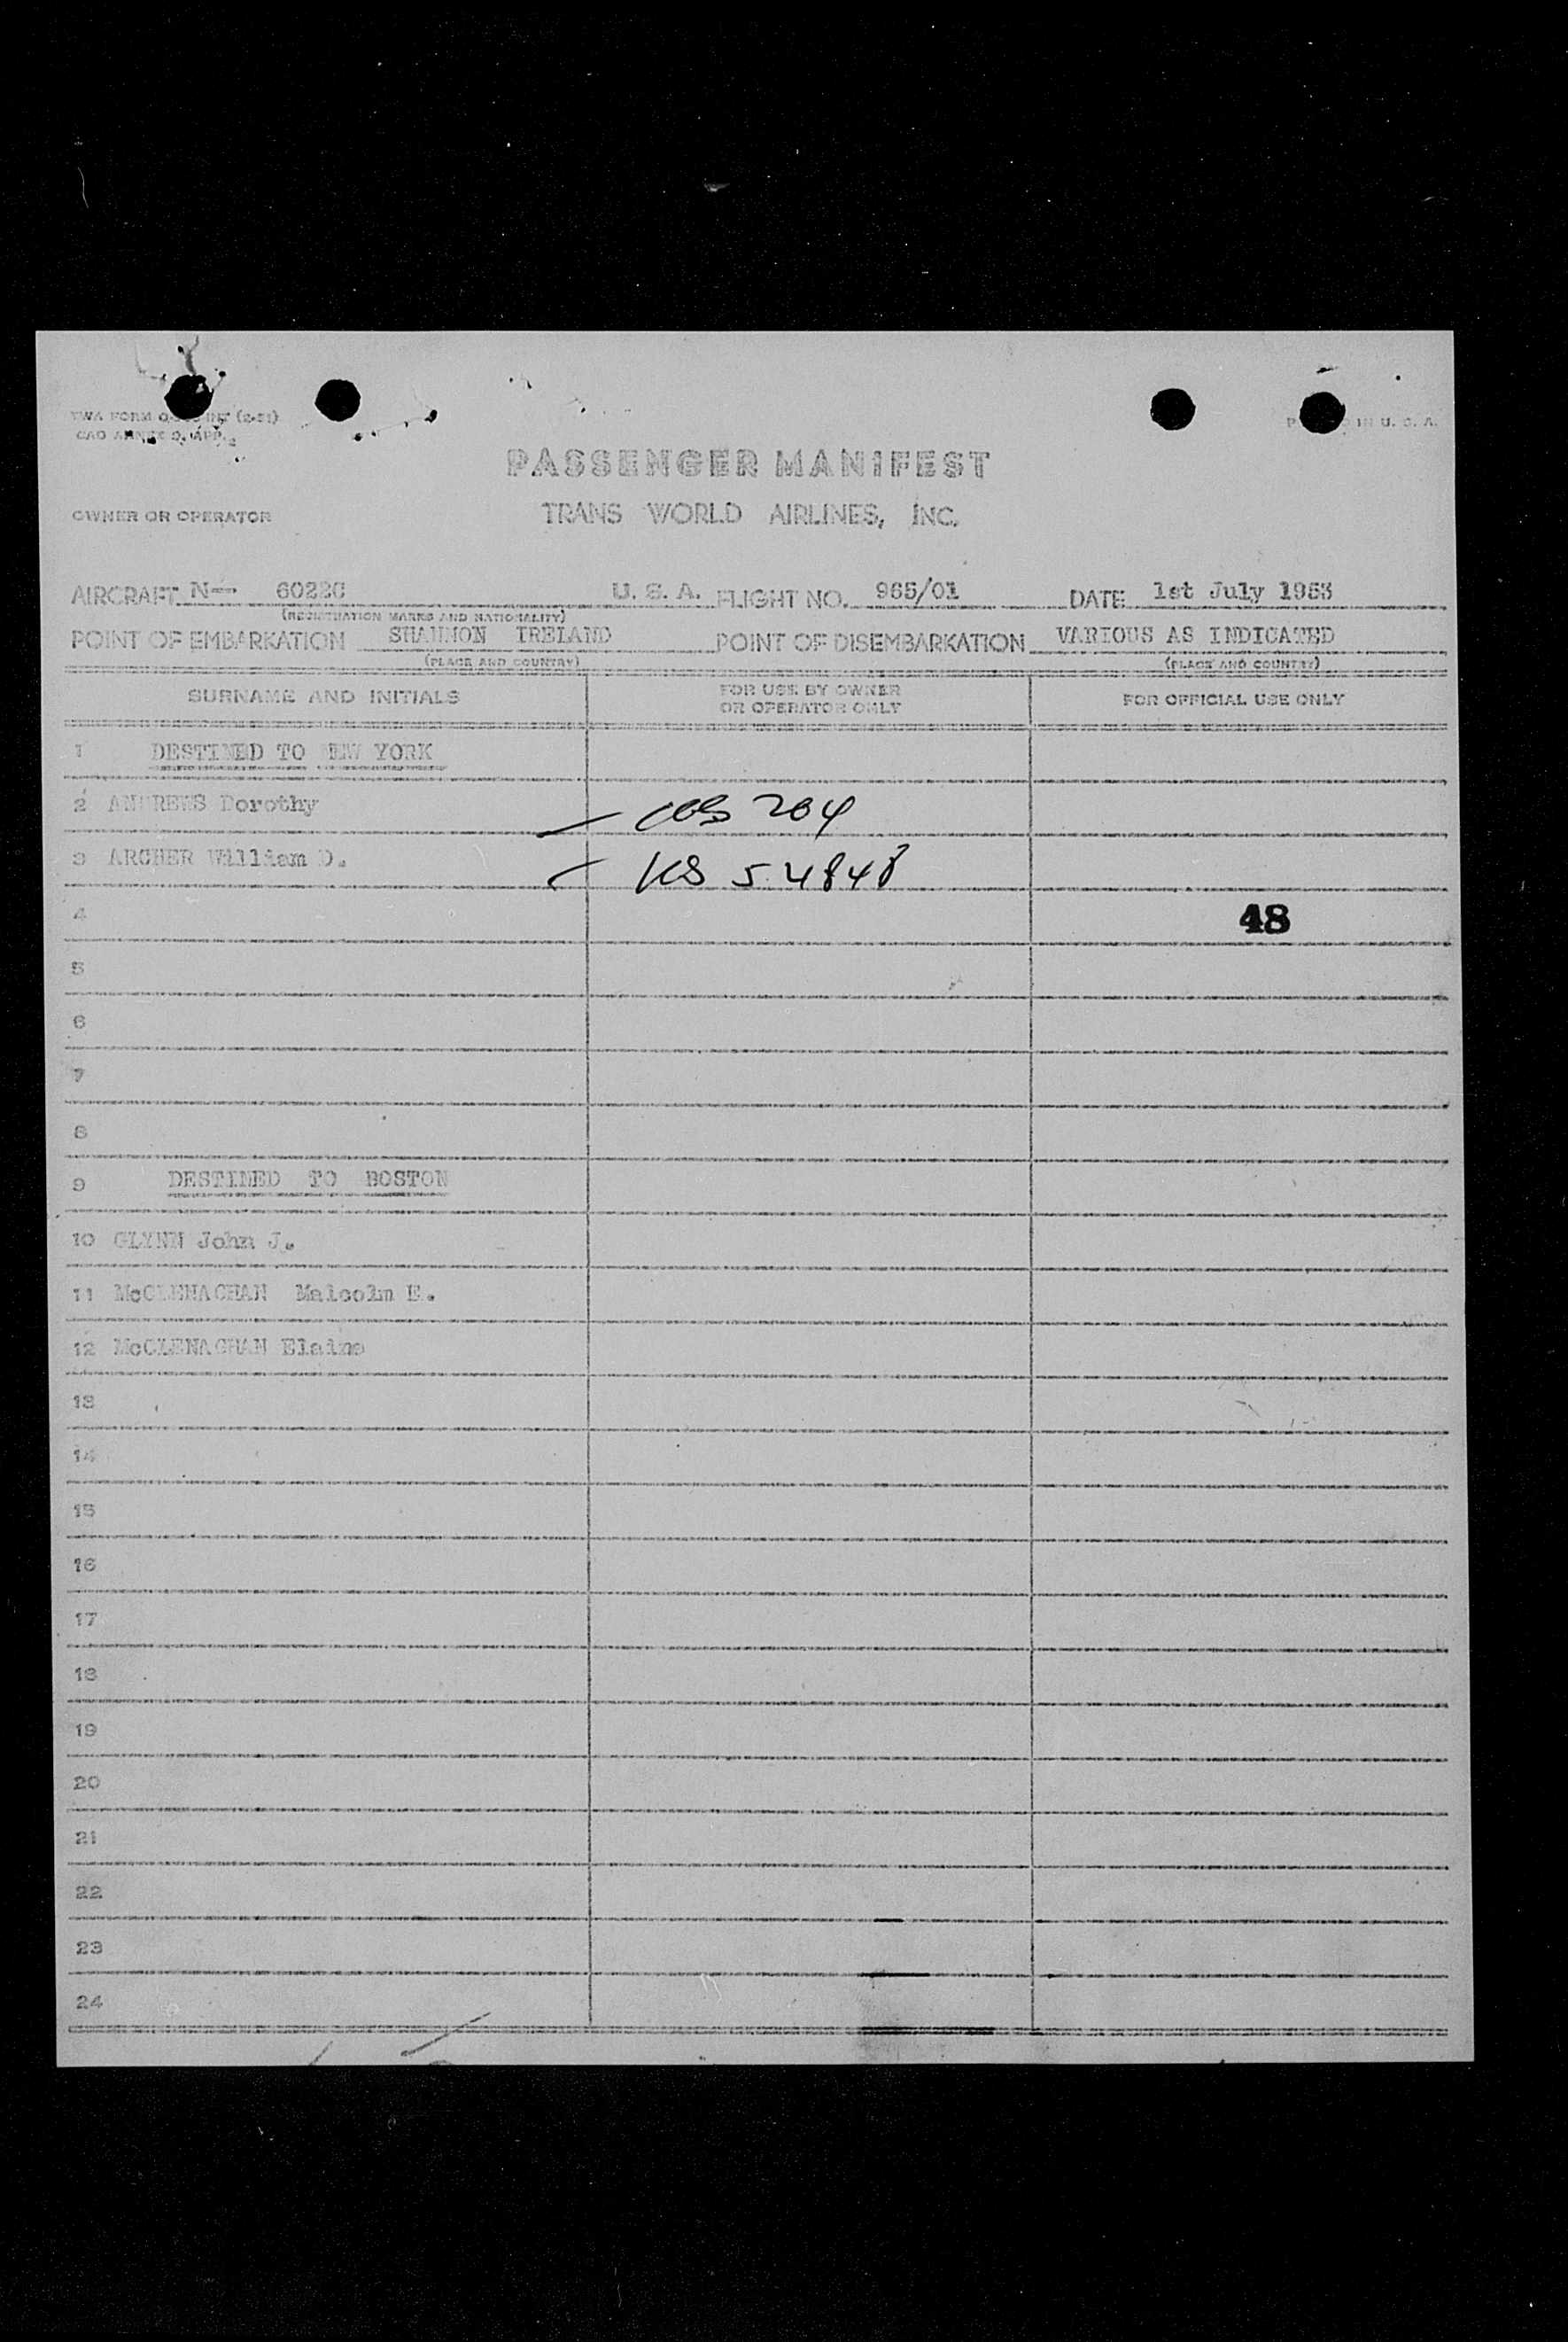 TWA FORM
PASSENGER MANIFEST
OWNER OR OPERATOR TRANS WORLD AIRLINES, INC.
AIRCRAFT N— U. S. A. FLIGHT NO. 965/01 DATE 1st July 1953
(REGISTRATION MARKS AND NATIONALITY)
POINT OF EMBARKATION SHANNON IRELAND POINT OF DISEMBARKATION VARIOUS AS INDICATED
(PLACE AND COUNTRY) (PLACE AND COUNTRY)
SURNAME AND INITIALS FOR USE BY OWNER OR OPERATOR ONLY FOR OFFICIAL USE ONLY
1 DESTINED TO NEW YORK
2 ANDREWS Dorothy 204
3 ARCHER William D. 54848
4 48
5
6
7
8
9 DESTINED TO BOSTON
10 GLYNN John J.
11 McCLENAGHAN Malcolm E.
12 McCLENAGHAN Elaine
13
14
15
16
17
18
19
20
21
22
23
24